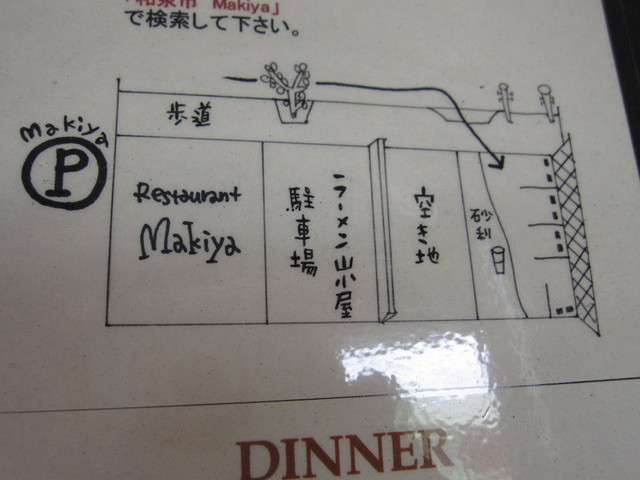 「和泉市 Makiya」
で検索して下さい。
歩道
Makiya
P
Restaurant
Makiya
駐車場
ラーメン山小屋
空き地
砂利
DINNER